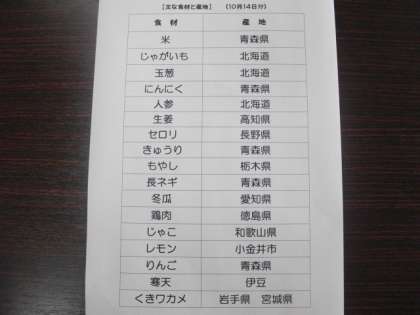 【主な食材と産地】 (10月14日分)
食 材 産 地
米 青森県
じゃがいも 北海道
玉葱 北海道
にんにく 青森県
人参 北海道
生姜 高知県
セロリ 長野県
きゅうり 青森県
もやし 栃木県
長ネギ 青森県
冬瓜 愛知県
鶏肉 徳島県
じゃこ 和歌山県
レモン 小金井市
りんご 青森県
寒天 伊豆
くきワカメ 岩手県 宮城県